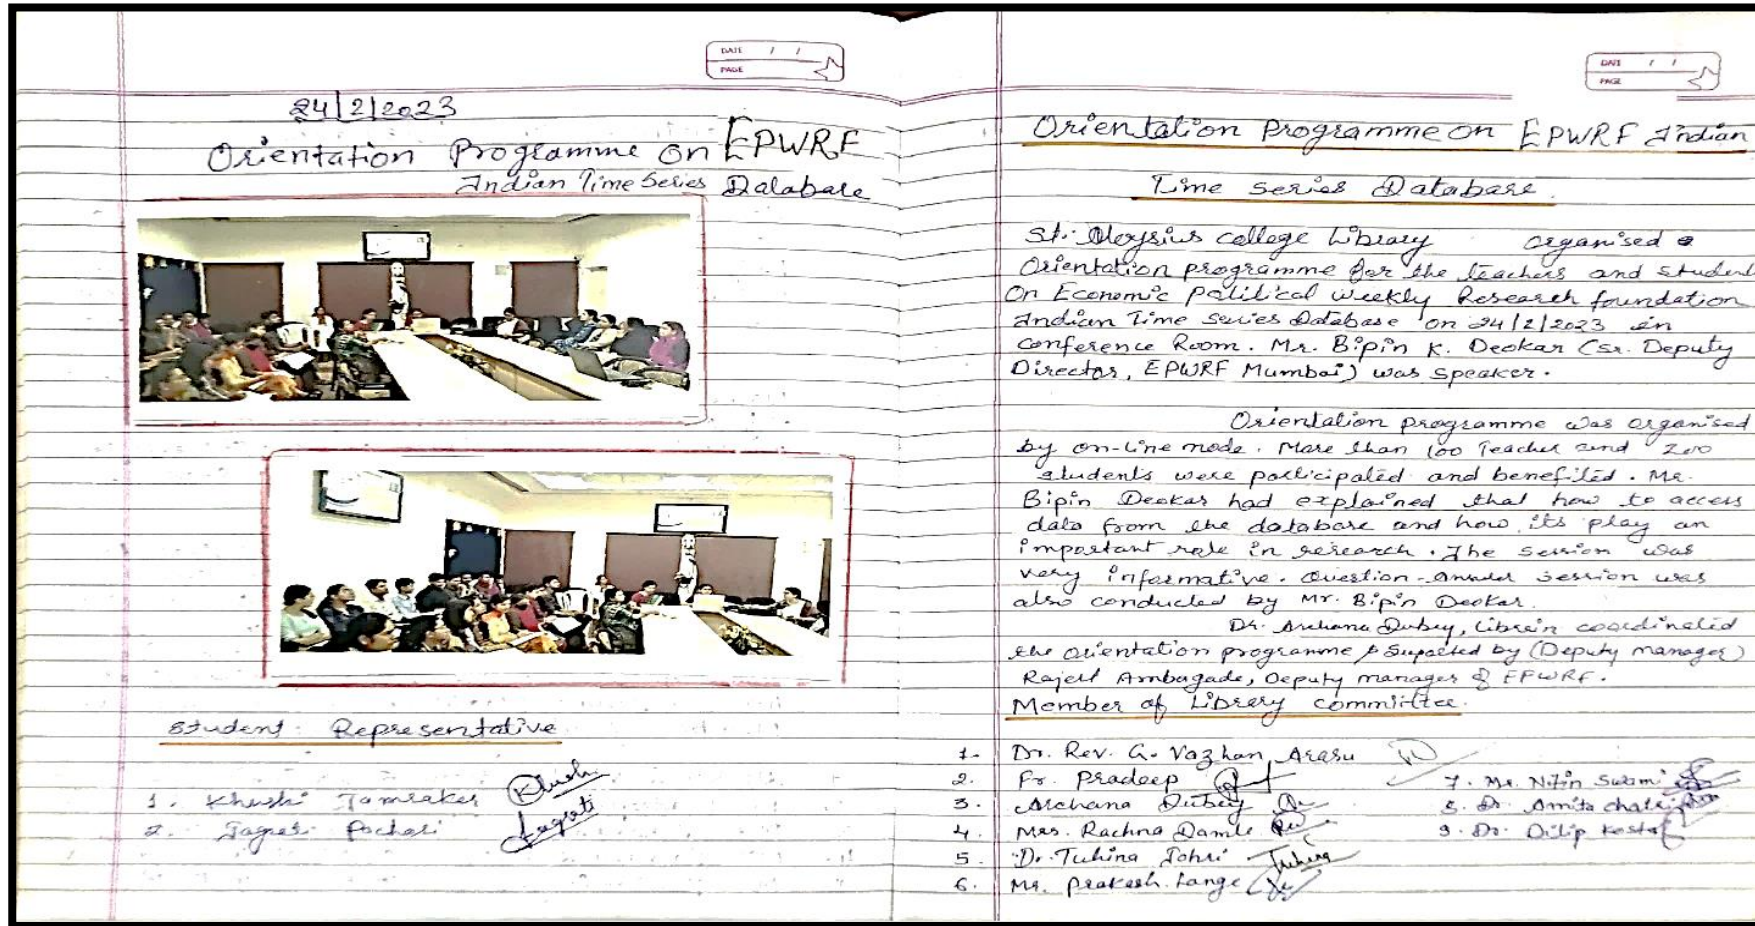 DATE / /
PAGE
24/2/2023
Orientation Programme on EPWRF
Indian Time Series Database
Student Representative
1. Khushi Jamraker Khushi
2. Jagrati Pachori Jagrati
DATE / /
PAGE
Orientation Programme on EPWRF Indian
Time Series Database.
St. Aloysius college Library organised a
Orientation programme for the teachers and student
On Economic Political weekly Research foundation
Indian Time Series Database on 24/2/2023 in
Conference Room. Mr. Bipin K. Deokar (Sr. Deputy
Director, EPWRF Mumbai) was speaker.
Orientation programme was organised
by on-line mode. More than 100 Teacher and 200
students were participated and benefited. Mr.
Bipin Deokar had explained that how to access
data from the database and how its play an
important role in research. The session was
very informative. Question-Answer session was
also conducted by Mr. Bipin Deokar.
Dr. Archana Dubey, Librain coordinated
the orientation programme & Supoxted by (Deputy manager)
Ambagade, Deputy manager of EPWRF.
Member of Library committee.
1. Dr. Rev. G. Vazhan Arasu
2. Fr. Pradeep
3. Archana Dubey
4. Mrs. Rachna Damle
5. Dr. Tuhina Johri Tuhina
6. Mr. Prakash Lange
7. Mr. Nitin Swami
8. Dr. Amita
9. Dr. Dilip